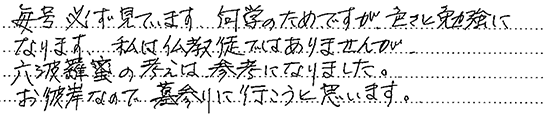 毎号必ず見ています 何学のためですが色々と勉強に
なります 私は仏教徒ではありませんが
六波羅蜜の考えは参考になりました。
お彼岸なので墓参りに行こうと思います。